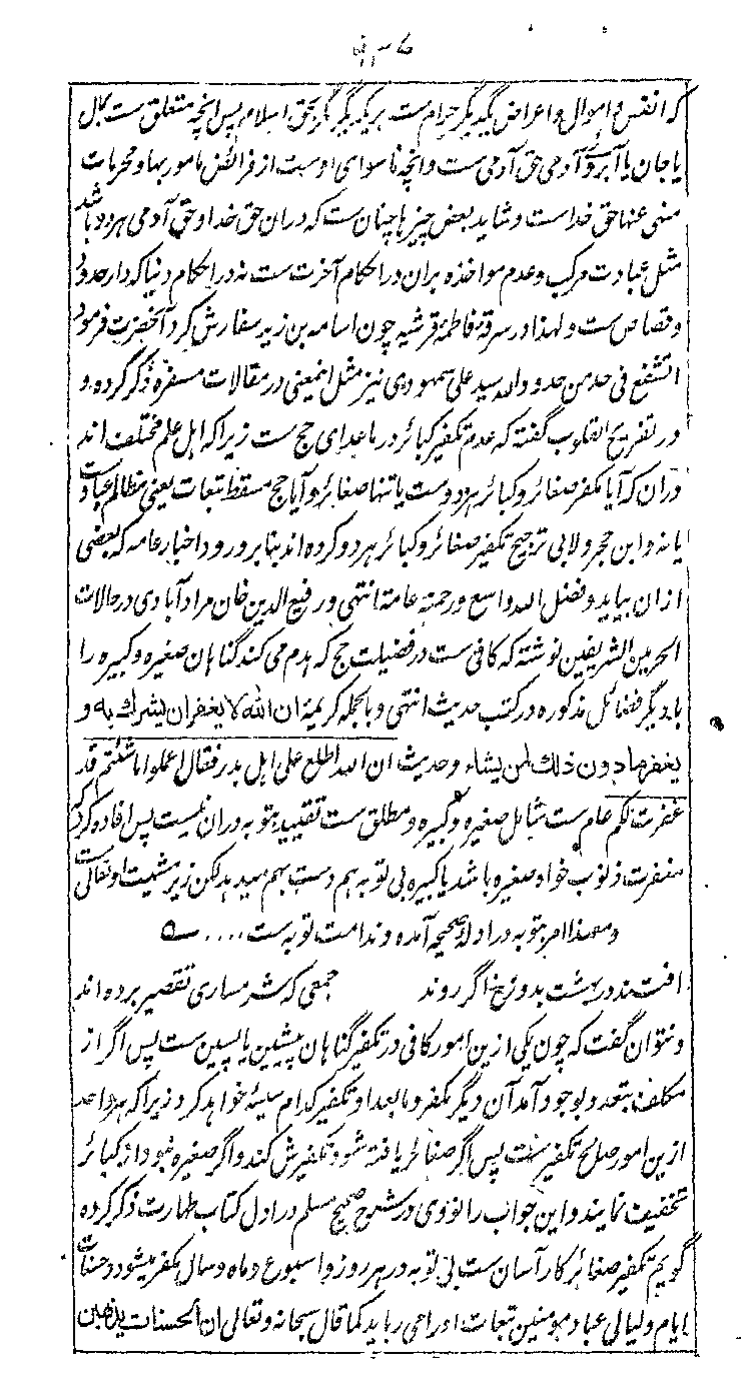 که انفس و اموال و اعراض یکدیگر حرام ست بر یکدیگر مگر بحق اسلام پس انچه متعلق ست بمال
یا جان یا آبروی آدمی حق آدمی ست و انچه ماسوای اوست از فرائض مامور بها و محرمات
منهی عنها حق خداست و شاید بعض چیزها چنان ست که دران حق خدا و حق آدمی هر دو باشد
مثل عبادت مرکب و عدم مواخذه بران در احکام آخرت ست نه در احکام دنیا که دار حدود
و قصاص ست و لهذا در سرقهٔ فاطمهٔ قرشیه چون اسامه بن زید سفارش کرد آنحضرت فرمود
اتشفع فی حد من حدود الله سید علی سمهودی نیز مثل اینمعنی در مقالات مسفره ذکر کرده و
در تفریح القلوب گفته که عدم تکفیر کبائر در ماعدای حج ست زیرا که اهل علم مختلف اند
دران که آیا مکفر صغائر و کبائر هر دوست یا تنها صغائر و آیا حج مسقط تبعات یعنی مظالم عبادست
یا نه و ابن حجر ولابی ترجیح تکفیر صغائر و کبائر هر دو کرده اند بنا بر ورود اخبار عامه که بعضی
ازان بیاید و فضل الله واسع و رحمته عامة انتهی و رفیع الدین خان مرادآبادی در حالات
الحرمین الشریفین نوشته که کافی ست در فضیلت حج که هدم می کند گناهان صغیره و کبیره را
با دیگر فضائل مذکوره در کتب حدیث انتهی و بالجمله کریمهٔ ان الله لا یغفر ان یشرک به و
یغفر ما دون ذلک لمن یشاء و حدیث ان الله اطلع علی اهل بدر فقال اعملوا ما شئتم قد
غفرت لکم عام ست شامل صغیره و کبیره و مطلق ست تقیید بتوبه دران نیست پس افاده کرد که
مغفرت ذنوب خواه صغیره باشد یا کبیره بی توبه هم دست بهم میدهد لکن زیر مشیت او تعالی ست
و معهذا امر بتوبه در ادلهٔ صحیحه آمده و ندامت توبه ست ....
افتند در بهشت بدوزخ اگر روند جمعی که شرمساری تقصیر برده اند
و نتوان گفت که چون یکی ازین امور کافی در تکفیر گناهان پیشین یا پسین ست پس اگر از
مکلف بتعدد بوجود آمد آن دیگر مکفر و مابعد او تکفیر کدام سیئه خواهد کرد زیرا که هر واحد
ازین امور صالح تکفیر ست پس اگر صغائر یافته شود تکفیرش کند و اگر صغیره نبود از کبائر
تخفیف نمایند و این جواب را نووی در شرح صحیح مسلم در اول کتاب طهارت ذکر کرده
گویم تکفیر صغائر کار آسان ست بی توبه در هر روز و اسبوع و ماه و سال مکفر میشود و حسنات
ایام و لیالی عباد مومنین تبعات او را می رباید کما قال سبحانه و تعالی ان الحسنات یذهبن